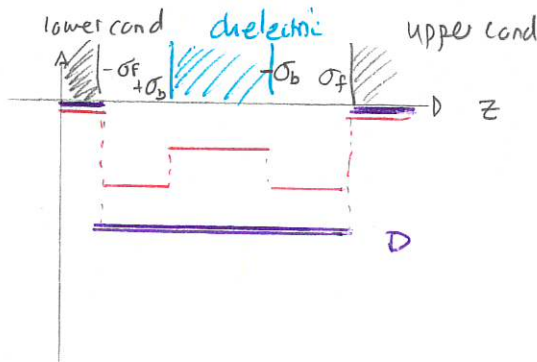 lower cond dielectric upper cond
-σf +σb -σb σf
z
D